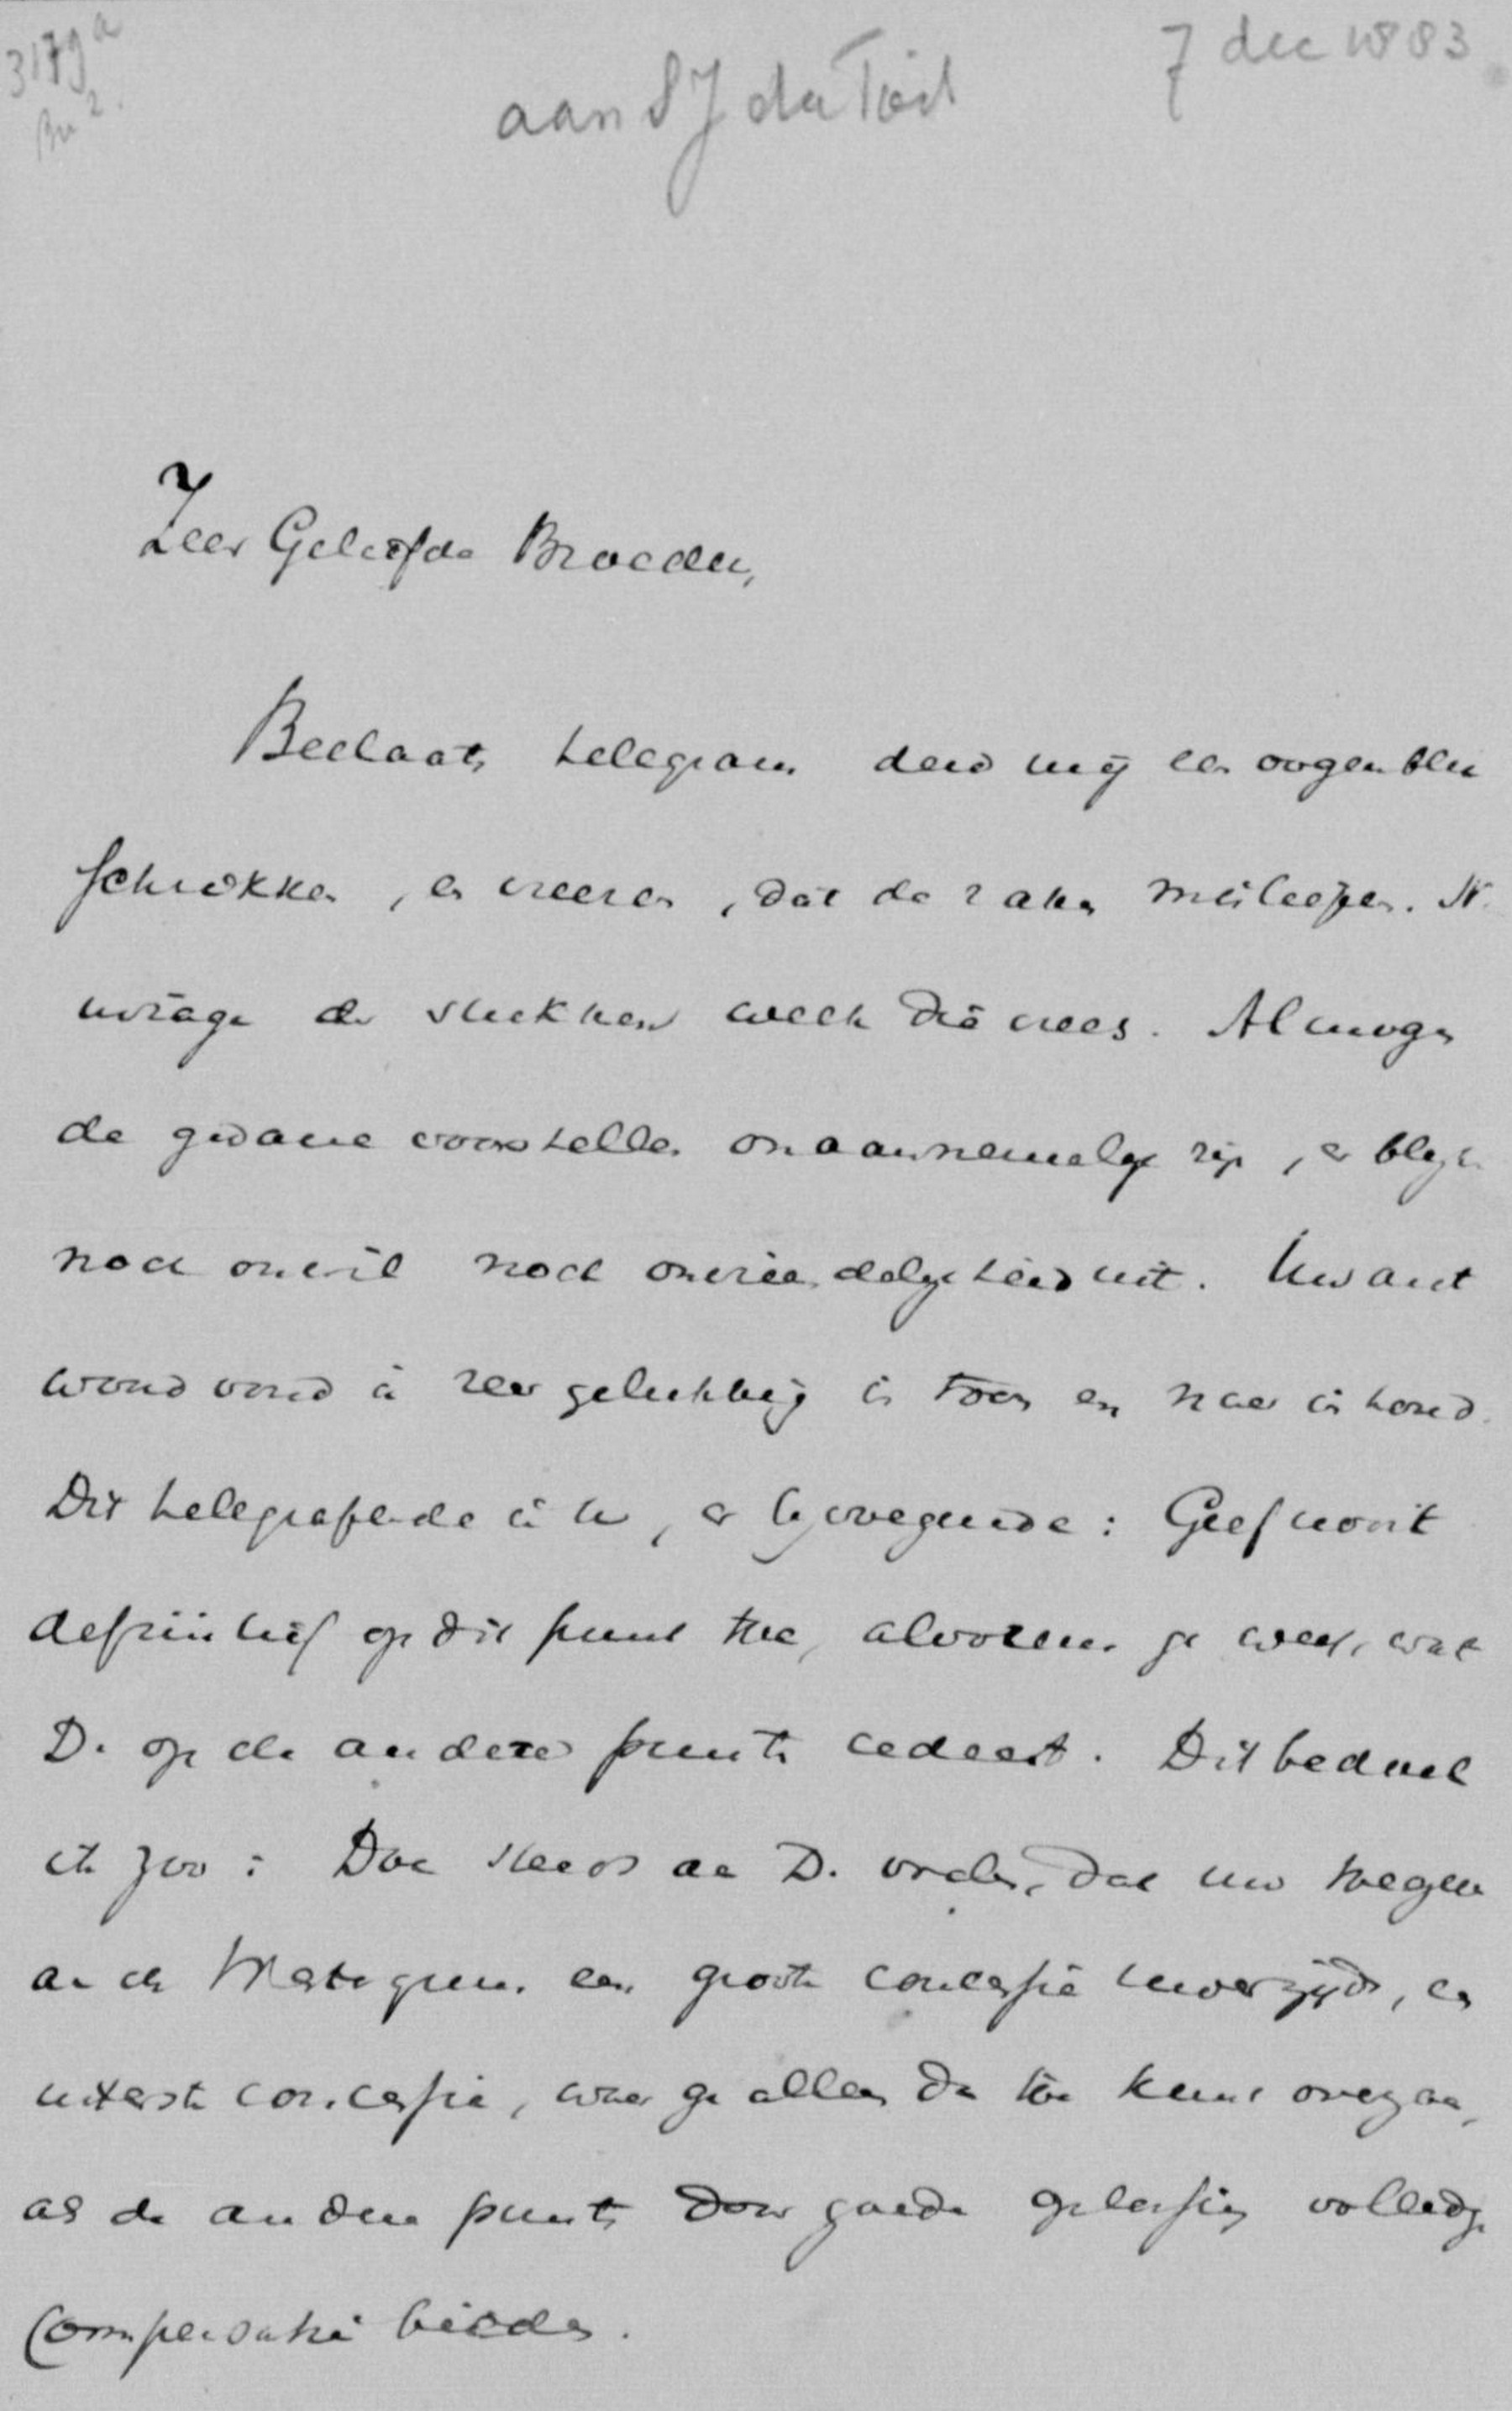 3179a
7 dec 1883
aan SJ du Toit
Zeer Geliefde Broeder,
Beelaerts telegram deed mij een oogenblik
schrikken, en vreezen, dat de zaken misliepen.
inzage der stukken week die vrees. Al mogen
de gedane voorstellen onaannemelijk zijn, er blijkt
noch onwil noch onvriendelijkheid uit. Uw ant
woord vond ik zeer gelukkig in toon en naar inhoud.
Dit telegrafeerde ik u, er bijvoegende: Geef nooit
definitief op dit punt toe, alvorens ge weet, wat
D. op de andere punten cedeert. Dit bedoel
ik zoo: Doe steeds aan D. voelen, dat uw toegeven
aan de Westergrens een groote concessie uwerzijds, een
uiterste concessie, waar ge alleen dan toe kunt overgaan,
als de andere punten door goede oplossing volledige
Compensatie bieden.